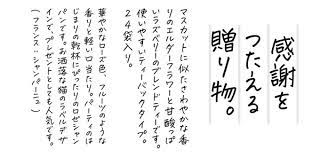 感謝を
つたえる
贈り物。
マスカットに似たさわやかな香
りのエルダーフラワーと甘酸っぱ
いラズベリーのブレンドティーです。
使いやすいティーバックタイプ。
２４袋入り。
華やかなローズ色、フルーツのような
香りと軽い口当たり。パーティのは
じまりの乾杯にぴったりのロゼシャン
パンです。お洒落な猫のラベルデザ
インで、プレゼントとしても人気です。
（フランス－シャンパーニュ）